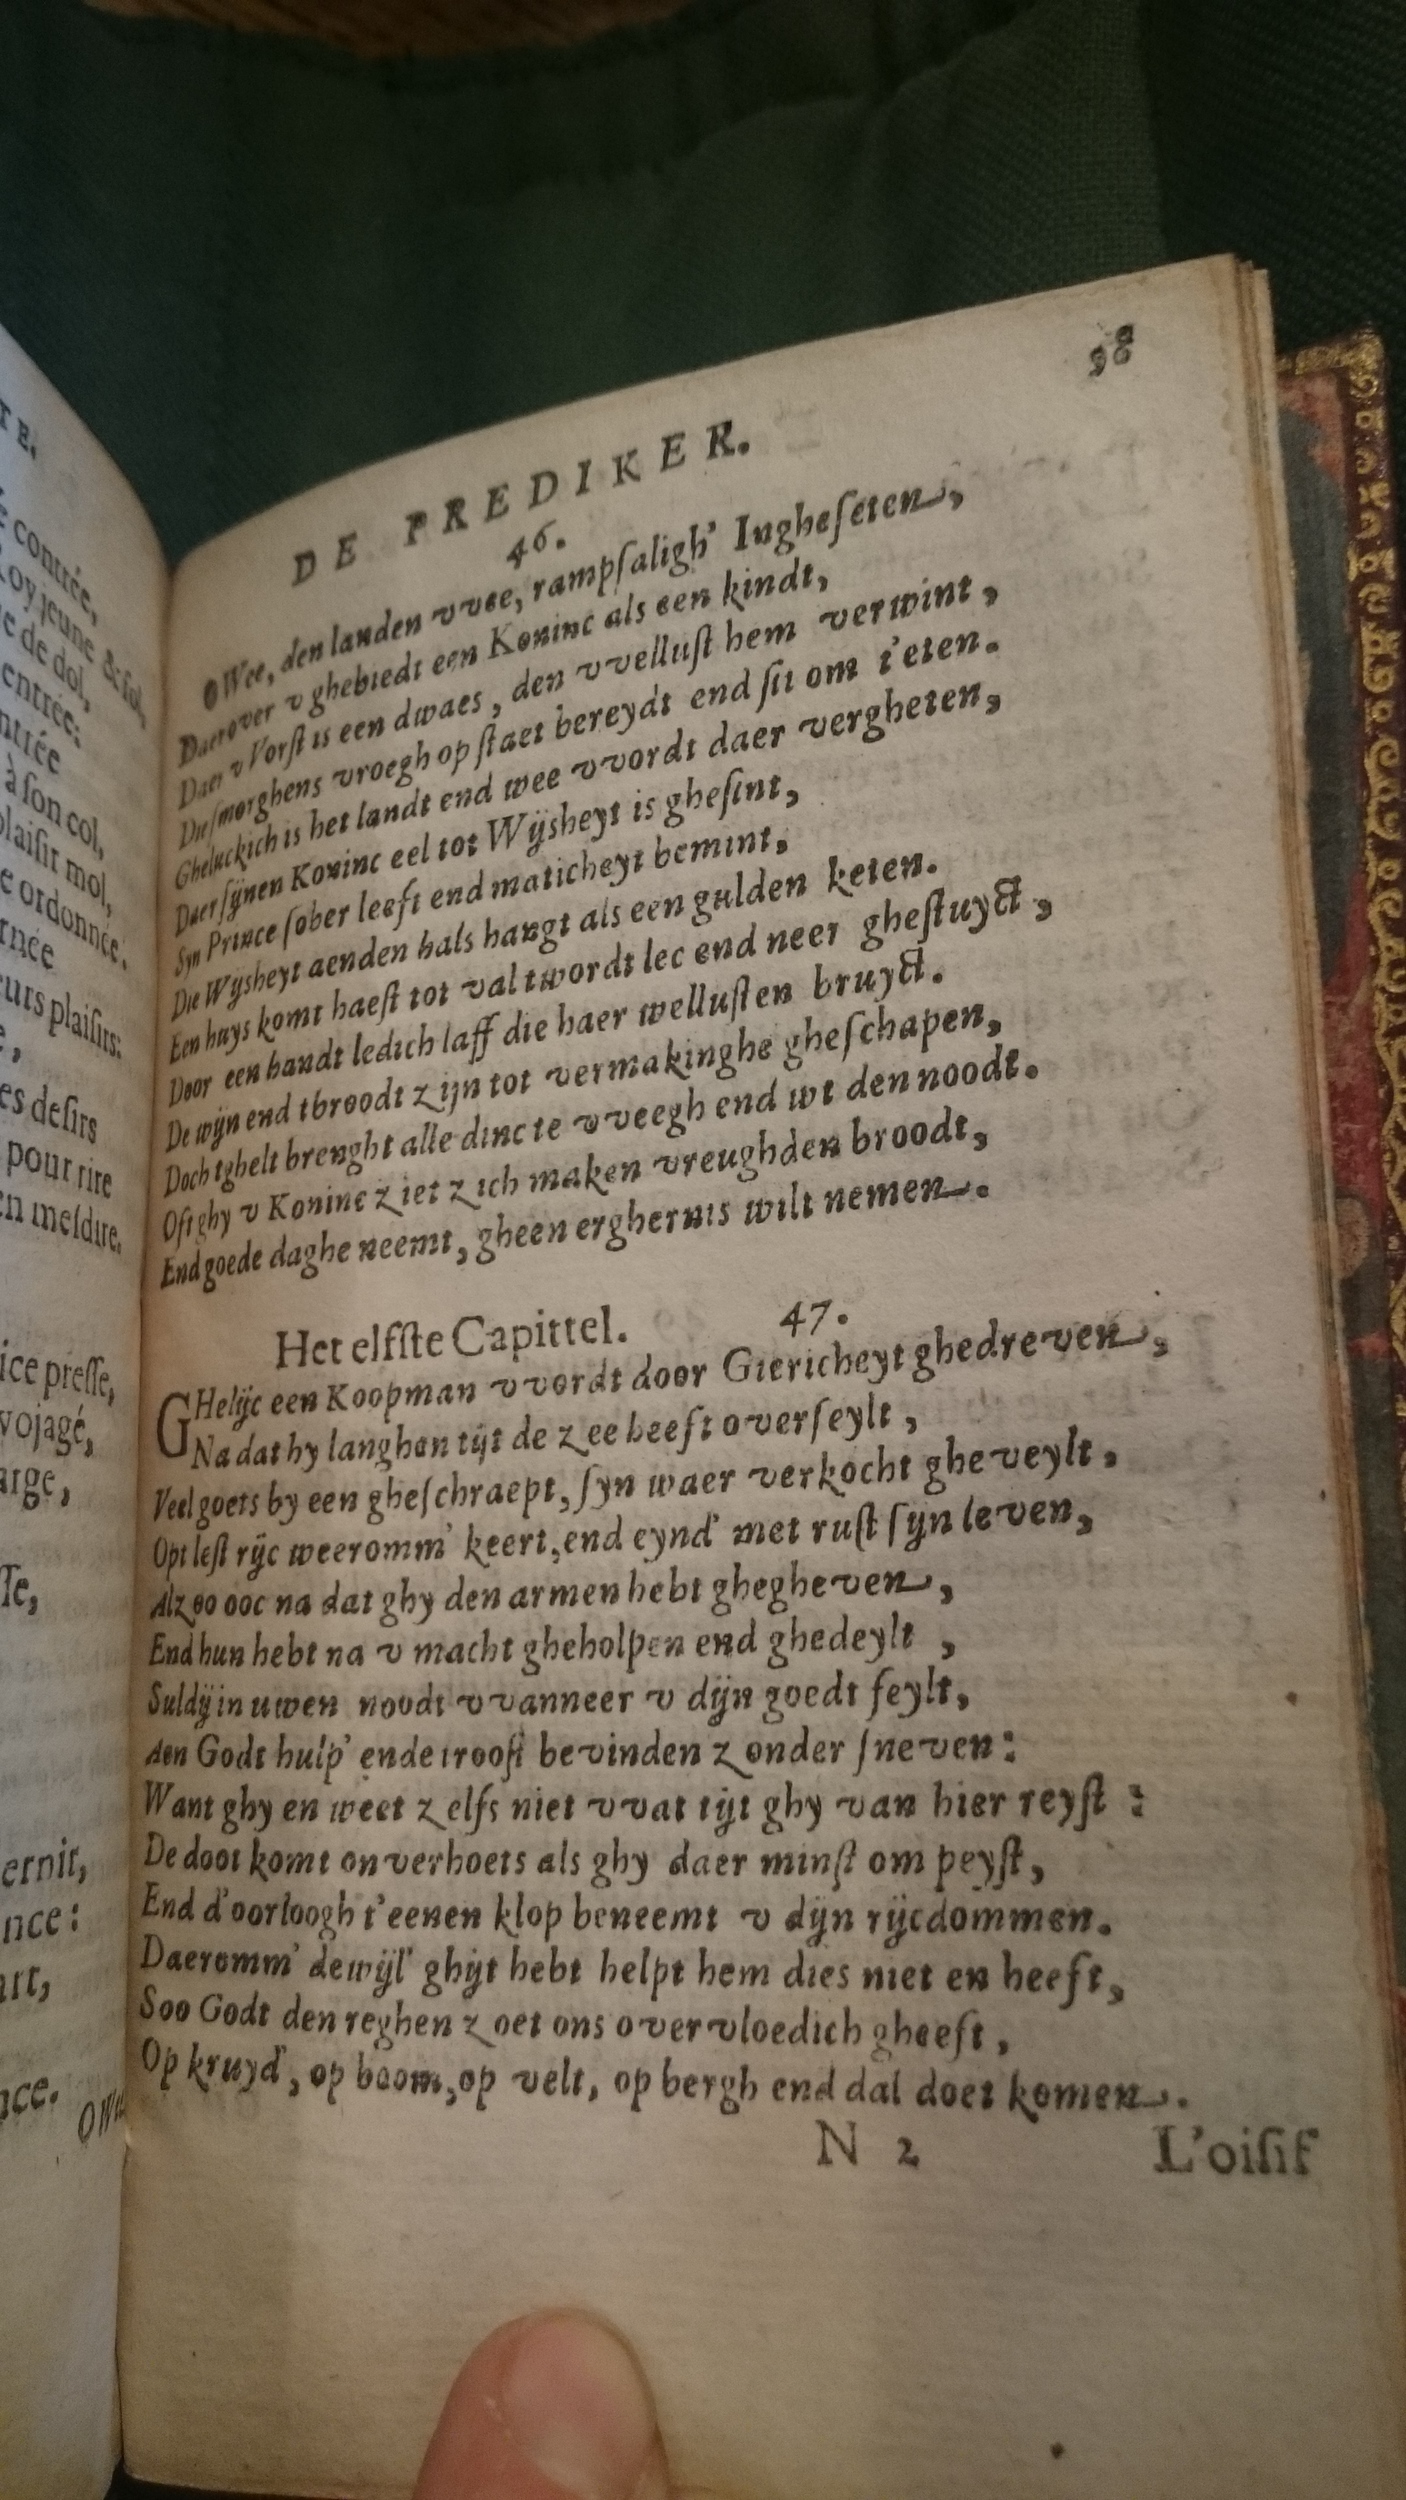 TE.
contrée,
Roy jeune & fol,
de dol,
entrée:
ntrée
à son col,
plaisir mol,
ordonnée.
rnée
eurs plaisirs:
es desirs
pour rire
en mesdire.
ice presse,
vojagé,
arge,
sse,
ernir,
nce:
art,
nce.
98
DE PREDIKER.
46.
O Wee, den landen vvee, rampſaligh' Ingheſeten,
Daerover v ghebiedt een Koninc als een kindt,
Daer v Vorſt is een dwaes, den vvelluſt hem verwint,
Die ſmorghens vroegh op ſtaet bereydt end ſit om t'eten.
Gheluckich is het landt end wee vvordt daer vergheten,
Daer ſijnen Koninc eel tot Wijsheyt is gheſint,
Syn Prince ſober leeft end maticheyt bemint,
Die Wijsheyt aenden hals hangt als een gulden keten.
Een huys komt haeſt tot val twordt lec end neer gheſtuyct,
Door een handt ledich laff die haer welluſten bruyct.
De wijn end tbroodt zijn tot vermakinghe gheſchapen,
Doch tghelt brenght alle dinc te vveegh end wt den noodt.
Oft ghy v Koninc ziet zich maken vreughden broodt,
End goede daghe neemt, gheen erghernis wilt nemen.
Het elfſte Capittel. 47.
GHelijc een Koopman vvordt door Giericheyt ghedreven,
Na dat hy langhen tijt de zee heeft overſeylt,
Veel goets by een gheſchraept, ſyn waer verkocht gheveylt,
Opt leſt rijc weeromm' keert, end eynd' met ruſt ſijn leven,
Alzoo ooc na dat ghy den armen hebt ghegheven,
End hun hebt na v macht gheholpen end ghedeylt,
Suldij in uwen noodt vvanneer v dijn goedt feylt,
Aen Godt hulp' ende trooſt bevinden zonder ſneven:
Want ghy en weet zelfs niet vvat tijt ghy van hier reyſt:
De doot komt onverhoets als ghy daer minſt om peyſt,
End d'oorloogh t'eenen klop beneemt v dijn rijcdommen.
Daeromm' dewijl' ghijt hebt helpt hem dies niet en heeft,
Soo Godt den reghen zoet ons overvloedich gheeft,
Op kruyd', op boom, op velt, op bergh end dal doet komen.
N 2 L'oiſif